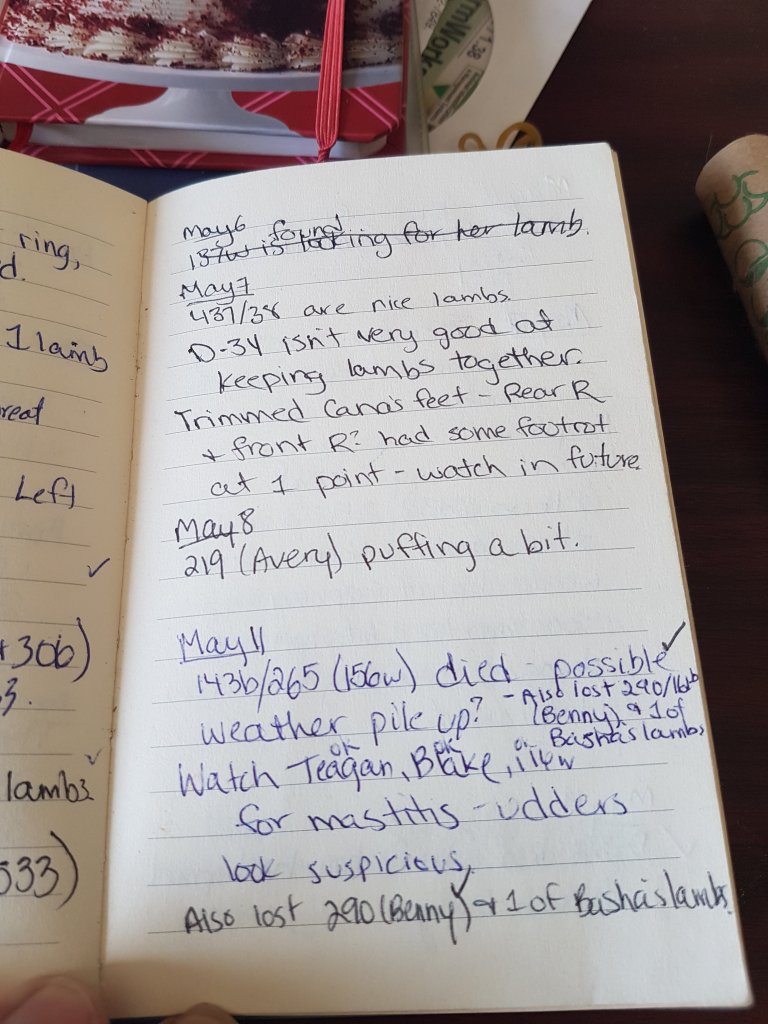 ring,
d.
1 lamb
reat
Left
✓
+30b)
3.
✓
lambs
533)
rmWork
May 6 found
137w is looking for her lamb.
May 7
437/38 are nice lambs.
D-34 isn't very good at
keeping lambs together.
Trimmed Cana's feet - Rear R
+ front R? had some footrot
at 1 point - watch in future.
May 8
219 (Avery) puffing a bit.
May 11
143b/265 (156w) died - possible ✓
weather pile up? - Also lost 290/16
(Benny) & 1 of
Basha's lambs
OK OK
Watch Teagan, Blake,
for mastitis - udders
look suspicious.
Also lost 290 (Benny) ✓ & 1 of Basha's lambs.